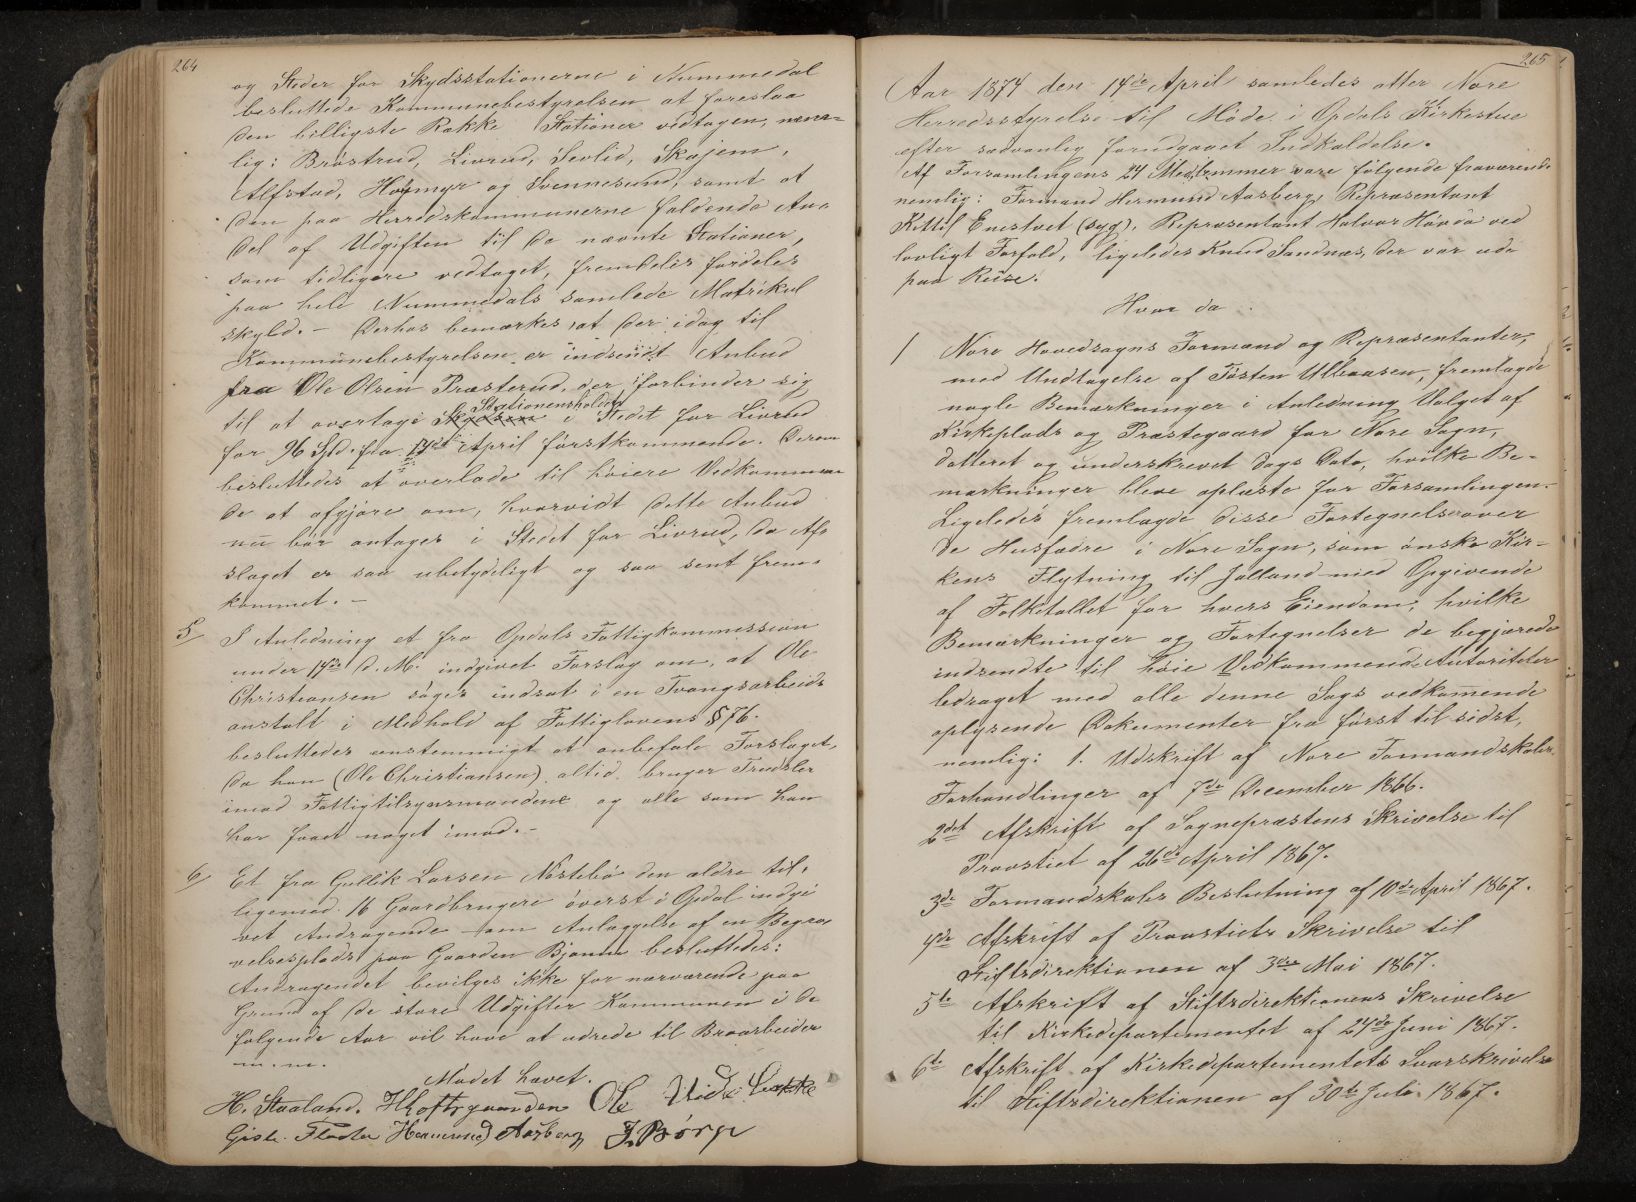 264
og Steder for Skydsstationerne i Nummedal
besluttede Kommunebestyrelsen at foreslaa
den billigste Række Stationer vedtagen, næm-
lig: Brøstrud, Livrud, Sevlid, Skajem,
Alfstad, Høymyr og Svennesund, samt at
den paa Herredskommunerne faldende An-
del af Udgiften til de nævnte Stationer,
som tidligere vedtaget, fremdeles fordeles
paa hele Nummedals samlede Matrikul
skyld. – Derhos bemærkes, at der idag til
Kommunebestyrelsen er indsendt Anbud
fra Ole Olsen Præsterud, der forbinder sig
til at overtage Stationsholdet i Stedet for Livrud
for 96 Spd. fra 14de April førstkommende. Derom
besluttedes at overlade til høiere Vedkommen
de at afgjøre om, hvorvidt dette Anbud
nu bør antages i Stedet for Livrud, da Af-
slaget er saa ubetydeligt og saa sent frem-
kommet. –
5/ I Anledning et fra Opdals Fattigkommission
under 14de d. M. indgivet Forslag om, at Ole
Christiansen søges indsat i en Tvangsarbeids
anstalt i Medhold af Fattiglovens § 76.
besluttedes enstemmigt at anbefale Forslaget,
da han (Ole Christiansen) altid bruger Trudsler
imod Fattigtilsynsmændene og alle som han
har faaet noget imod. –
6/ Et fra Gullik Larsen Nøstebø den ældre til-
ligemed 16 Gaardbrugere øverst i Opdal indgi
vet Andragende om Anlæggelse af en Begra-
velsesplads paa Gaarden Bjønnu besluttedes:
Andragendet bevilges ikke for nærværende paa
Grund af de store Udgifter Kommunen i de
følgende Aar vil have at udrede til Broarbeider
m. m.
Mødet hævet.
H. Staaland. Ole
Hermund Aasberg J. Børge
265
Aar 1874 den 14de April samledes atter Nore
Herredsstyrelse til Møde i Opdals Kirkestue
efter sædvanlig forudgaaet Indkaldelse.
Af Forsamlingens 24 Medlemmer vare følgende fraværende
nemlig: Formand Hermund Aasberg, Repræsentant
Kittil Enestvet (syg), Repræsentant Halvor Høvda ved
lovligt Forfald, ligeledes Knud Sandnæs, der var ude
paa Reise.
Hvor da
1 Nore Hovedsogns Formænd og Repræsentanter,
med Undtagelse af Tosten Ulbaasen, fremlagde
nogle Bemærkninger i Anledning Valget af
Kirkeplads og Præstegaard for Nore Sogn,
datteret og underskrevet dags Dato, hvilke Be-
mærkninger bleve oplæste for Forsamlingen.
Ligeledes fremlagde disse Fortegnelse over
de Husfædre i Nore Sogn, som ønske Kir-
kens Flytning til Jølland med Opgivende
af Folketallet for hvers Eiendom; hvilke
Bemærkninger og Fortegnelser de begjærede
indsendte til høie Vedkommende Autoriteter
ledsaget med alle denne Sags vedkommende
oplysende Dokumenter fra først til sidst,
nemlig: 1. Udskrift af Nore Formandskabs
Forhandlinger af 7de December 1866.
2det Afskrift af Sognepræstens Skrivelse til
Provstiet af 26de April 1867.
3de Formandskabs Beslutning af 10de April 1867.
4de Afskrift af Provstiets Skrivelse til
Stiftsdirektionen af 3die Mai 1867.
5te Afskrift af Stiftsdirektionens Skrivelse
til Kirkedepartementet af 24de Juni 1867.
6te Afskrift af Kirkedepartementets Svarskrivelse
til Stiftsdirektionen af 30te Juli 1867.